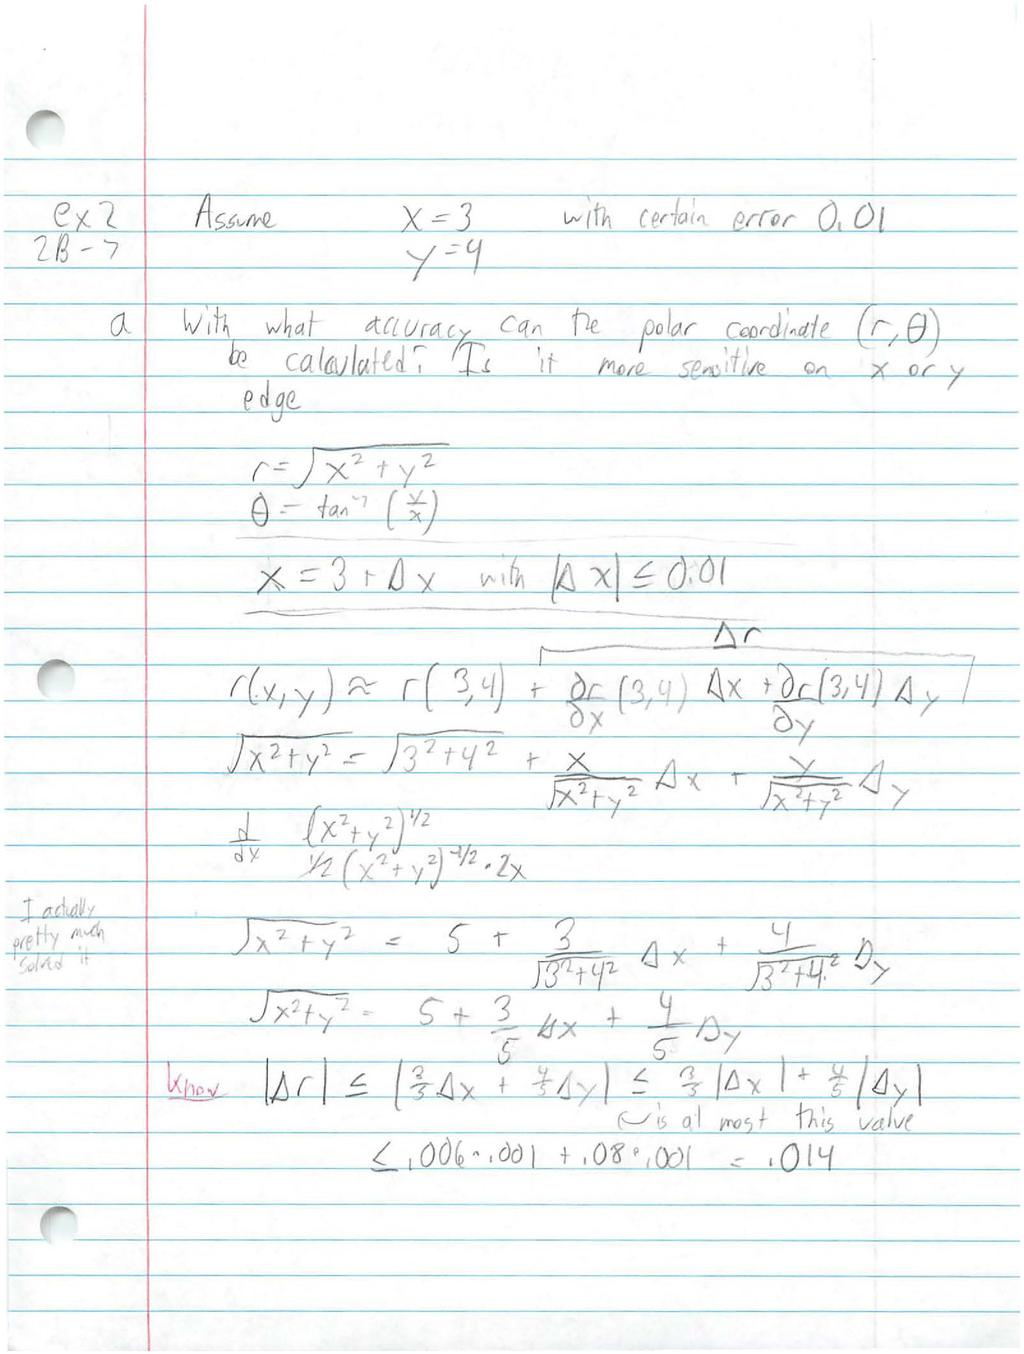 ex2 Assume x = 3 with certain error 0.01
2B-7 y = 4
a With what accuracy can the polar coordinate (r, θ)
be calculated? Is it more sensitive on x or y
edge
r = √(x² + y²)
θ = tan⁻¹ (y/x)
x = 3 + Δx with |Δx| ≤ 0.01
Δr
r(x, y) ≈ r(3,4) + ∂r/∂x (3,4) Δx + ∂r/∂y (3,4) Δy
√(x² + y²) = √(3² + 4²) + x/√(x² + y²) Δx + y/√(x² + y²) Δy
d/dx (x² + y²)^1/2
1/2 (x² + y²)^-1/2 · 2x
I actually
pretty much
solved it
√(x² + y²) = 5 + 3/√(3² + 4²) Δx + 4/√(3² + 4²) Δy
√(x² + y²) = 5 + 3/5 Δx + 4/5 Δy
Know |Δr| ≤ |3/5 Δx + 4/5 Δy| ≤ 3/5 |Δx| + 4/5 |Δy|
is at most this value
≤ .006 · .001 + .08 · .001 = .014